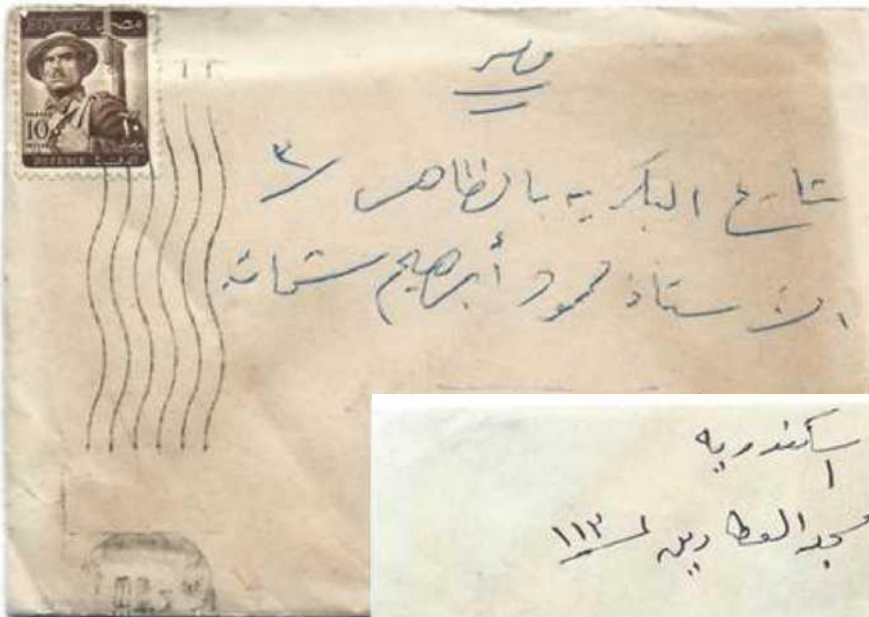 EGYPTE مصر
10 ١٠
DEFENCE الدفاع
مصر
شارع البكريه بالظاهر ٣
الأستاذ محمود أبرهيم شحاته
اسكندريه
مسجد العطارين ١١٣